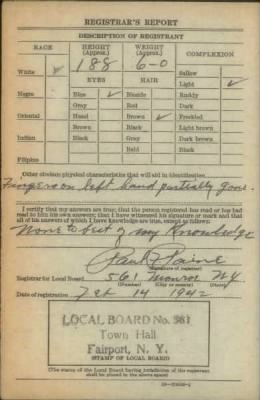 REGISTRAR'S REPORT
DESCRIPTION OF REGISTRANT
RACE HEIGHT (Approx.) WEIGHT (Approx.) COMPLEXION
White ✓ 188 6-0 Sallow
EYES HAIR Light ✓
Negro Blue ✓ Blonde Ruddy
Gray Red Dark
Oriental Hazel Brown ✓ Freckled
Brown Black Light brown
Indian Black Gray Dark brown
Bald Black
Filipino
Other obvious physical characteristics that will aid in identification
Fingers on left hand partially gone.
I certify that my answers are true; that the person registered has read or has had
read to him his own answers; that I have witnessed his signature or mark and that
all of his answers of which I have knowledge are true, except as follows:
None to best of my Knowledge
Paul Paine
(Signature of registrar)
Registrar for Local Board 561 Monroe N.Y.
(Number) (City or county) (State)
Date of registration Feb 14 1942
LOCAL BOARD No. 561
Town Hall
Fairport, N. Y.
(STAMP OF LOCAL BOARD)
(The stamp of the Local Board having jurisdiction of the registrant
shall be placed in the above space)